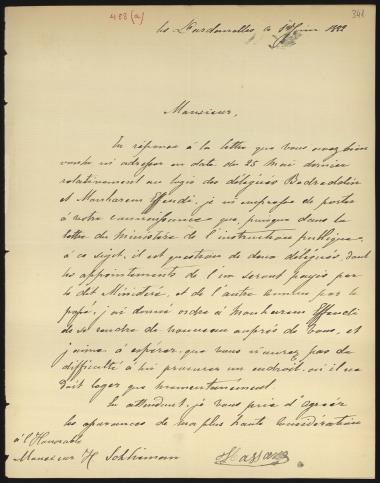 408 (a)
341
les Dardanelles ce 1 Juin 1882
Monsieur,
En réponse à la lettre que vous avez bien
voulu m'adresser en date du 25 Mai dernier
relativement au logis des délégués Bedreddin
et Moharem Effendi, je m'empresse de porter
à votre connaissance que, puisque dans la
lettre du Ministère de l'instruction publique
à ce sujet, il est question de deux délégués, dont
les appointements de l'un seront payés par
le dit Ministère, et de l'autre comme par le
passé, j'ai donné ordre à Moharem Effendi
de se rendre de nouveau auprès de Vous, et
j'aime à espérer que vous n'aurez pas de
difficulté à lui procurer un endroit où il ne
Doit loger que momentanément
En attendant, je vous prie d'agréer
les assurances de ma plus haute Considération
à l'Honorable
Monsieur H Schliemann
Hassan